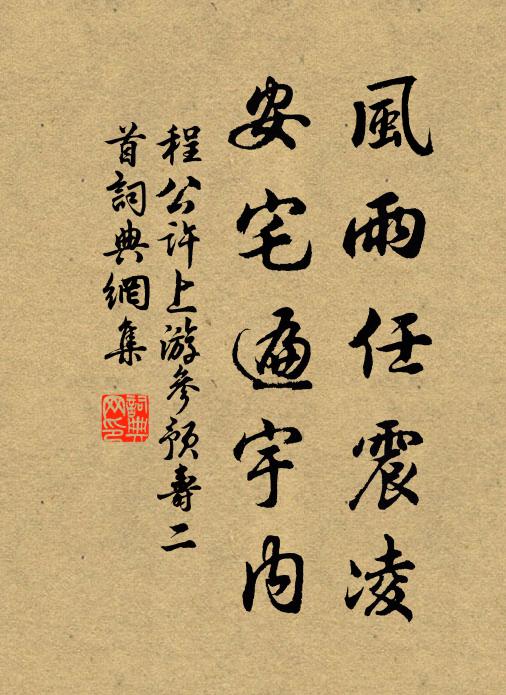 風雨任震凌
安宅遍宇內
程公許上游參預壽二
首詞典網集
詞典
网印